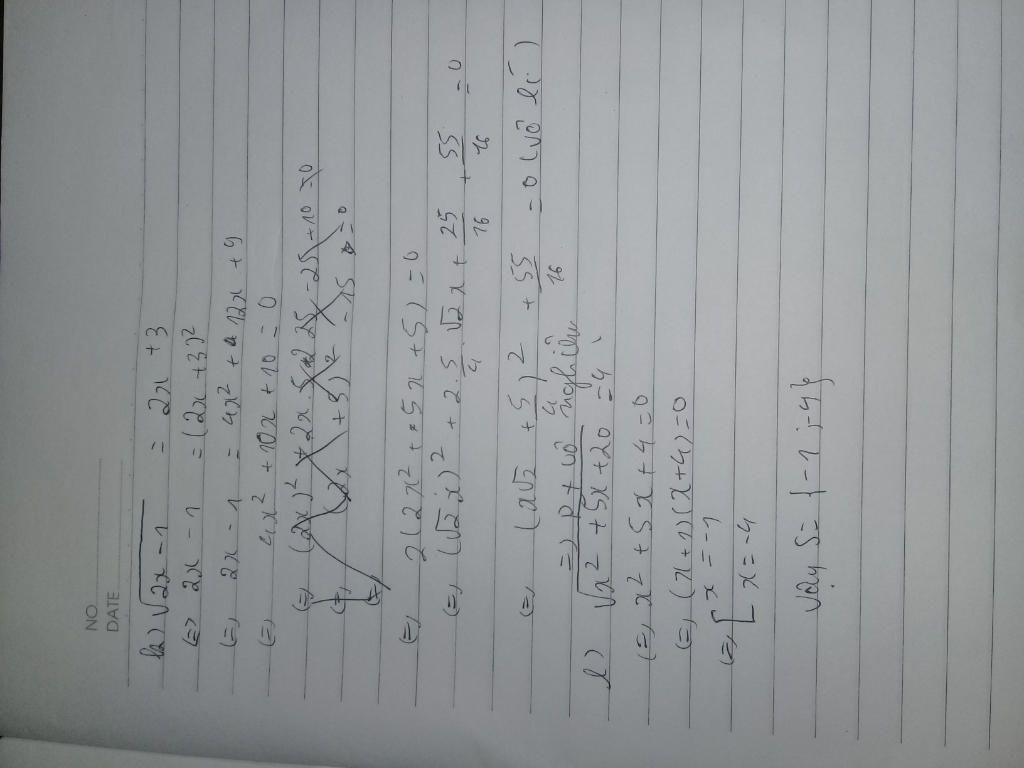 NO
DATE
k) √2x-1 = 2x + 3
(=) 2x - 1 = (2x + 3)²
(=) 2x - 1 = 4x² + 12x + 9
(=) 4x² + 10x + 10 = 0
(=) (2x)² + 2x . 5 + 25 - 25 + 10 = 0
(=) (2x + 5)² - 15 = 0
(=)
(=) 2(2x² + 5x + 5) = 0
(=) (√2x)² + 2. 5/4 √2x + 25/16 + 55/16 = 0
(=) (x√2 + 5/4)² + 55/16 = 0 (vô lí)
=) pt vô nghiệm
l) √x² + 5x + 20 = 4
(=) x² + 5x + 4 = 0
(=) (x+1)(x+4) = 0
(=) [ x = -1
x = -4
vậy S = {-1; -4}